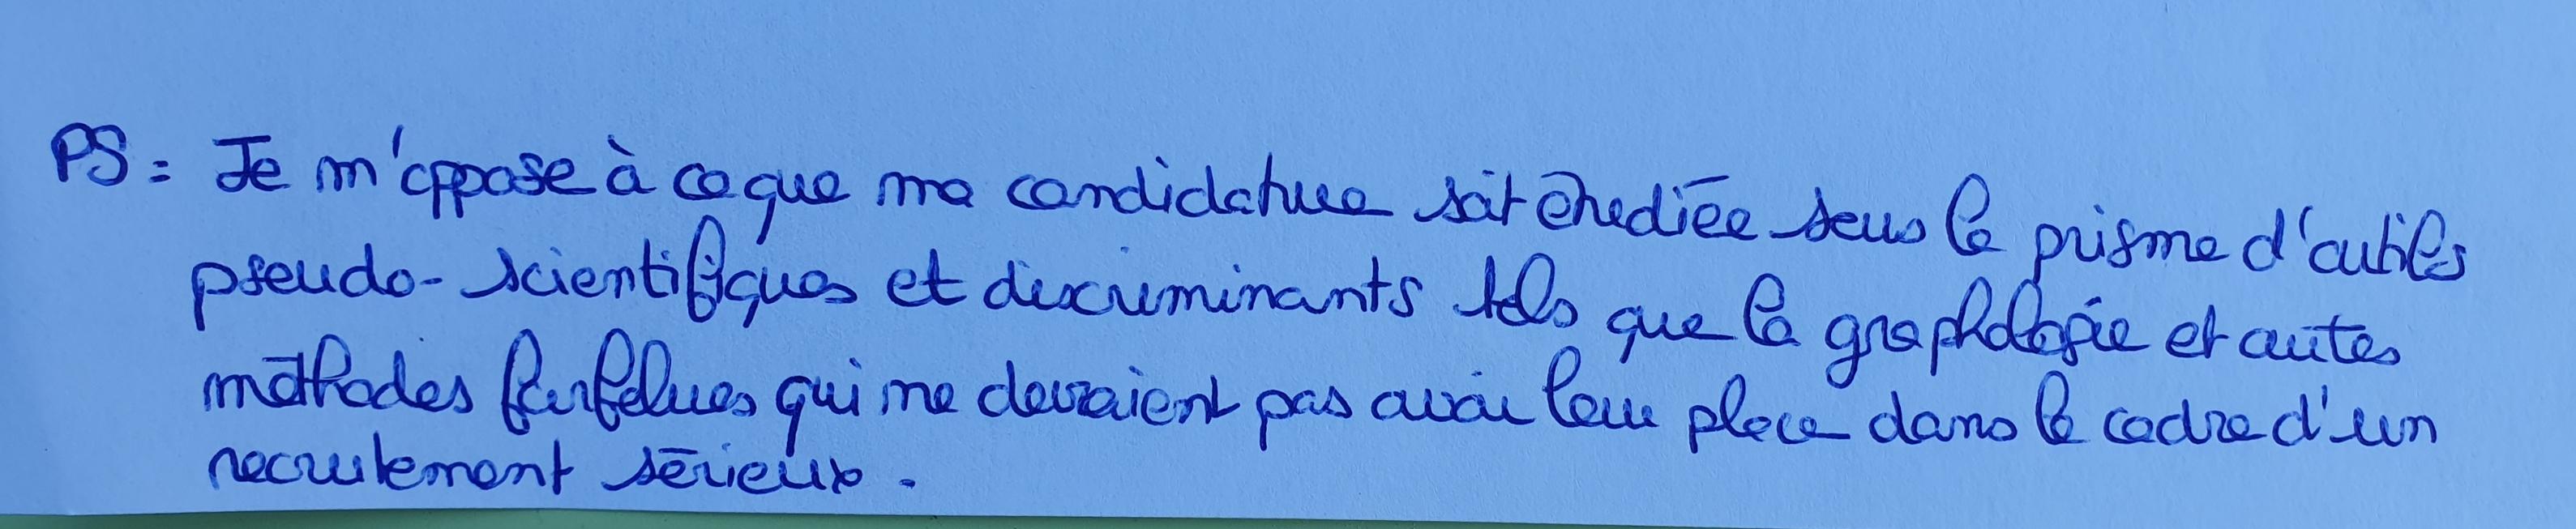 PS: Je m'oppose à ce que ma candidature soit étudiée sous le prisme d'outils
pseudo-scientifiques et discriminants tels que la graphologie et autres
méthodes farfelues qui ne devraient pas avoir leur place dans le cadre d'un
recrutement sérieux.